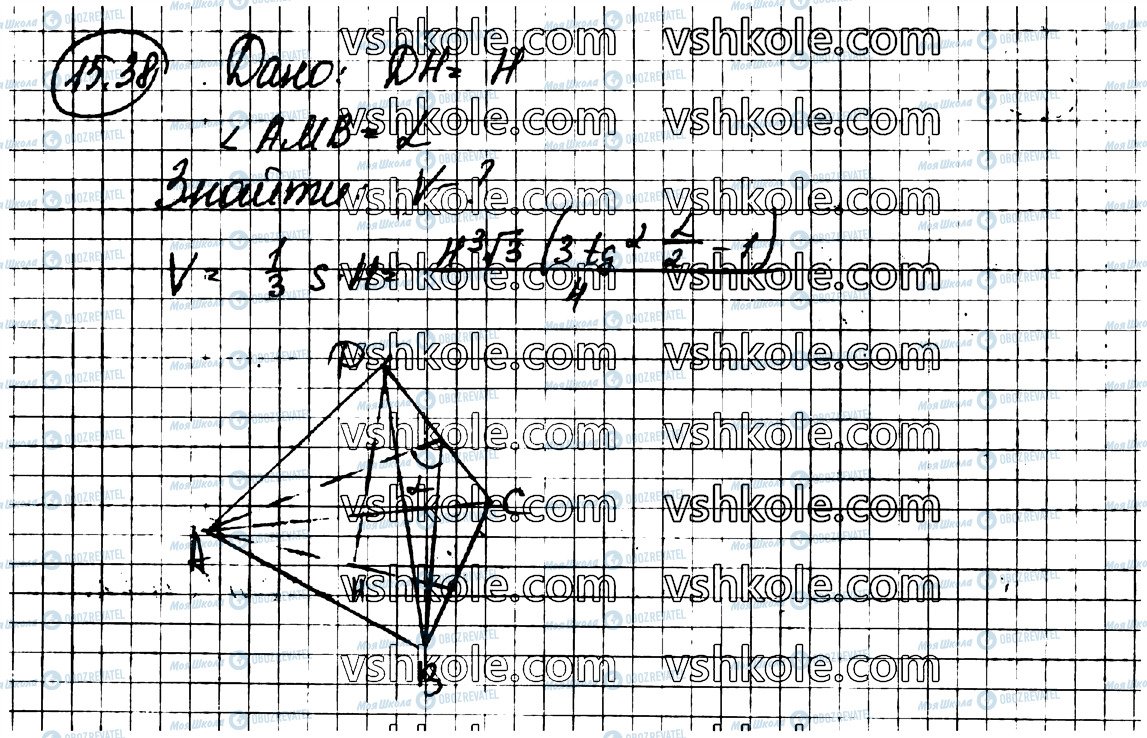 15.38 Дано: DH = H
∠ AMB = α
Знайти: V - ?
V = 1/3 S · H = H³√3 (3 tg² α/2 - 1) / 4
D
α
C
A
H
B
vshkole.com vshkole.com
vshkole.com vshkole.com
vshkole.com vshkole.com
vshkole.com vshkole.com
vshkole.com vshkole.com
vshkole.com vshkole.com
vshkole.com vshkole.com
vshkole.com vshkole.com
vshkole.com vshkole.com
Моя Школа OBOZREVATEL